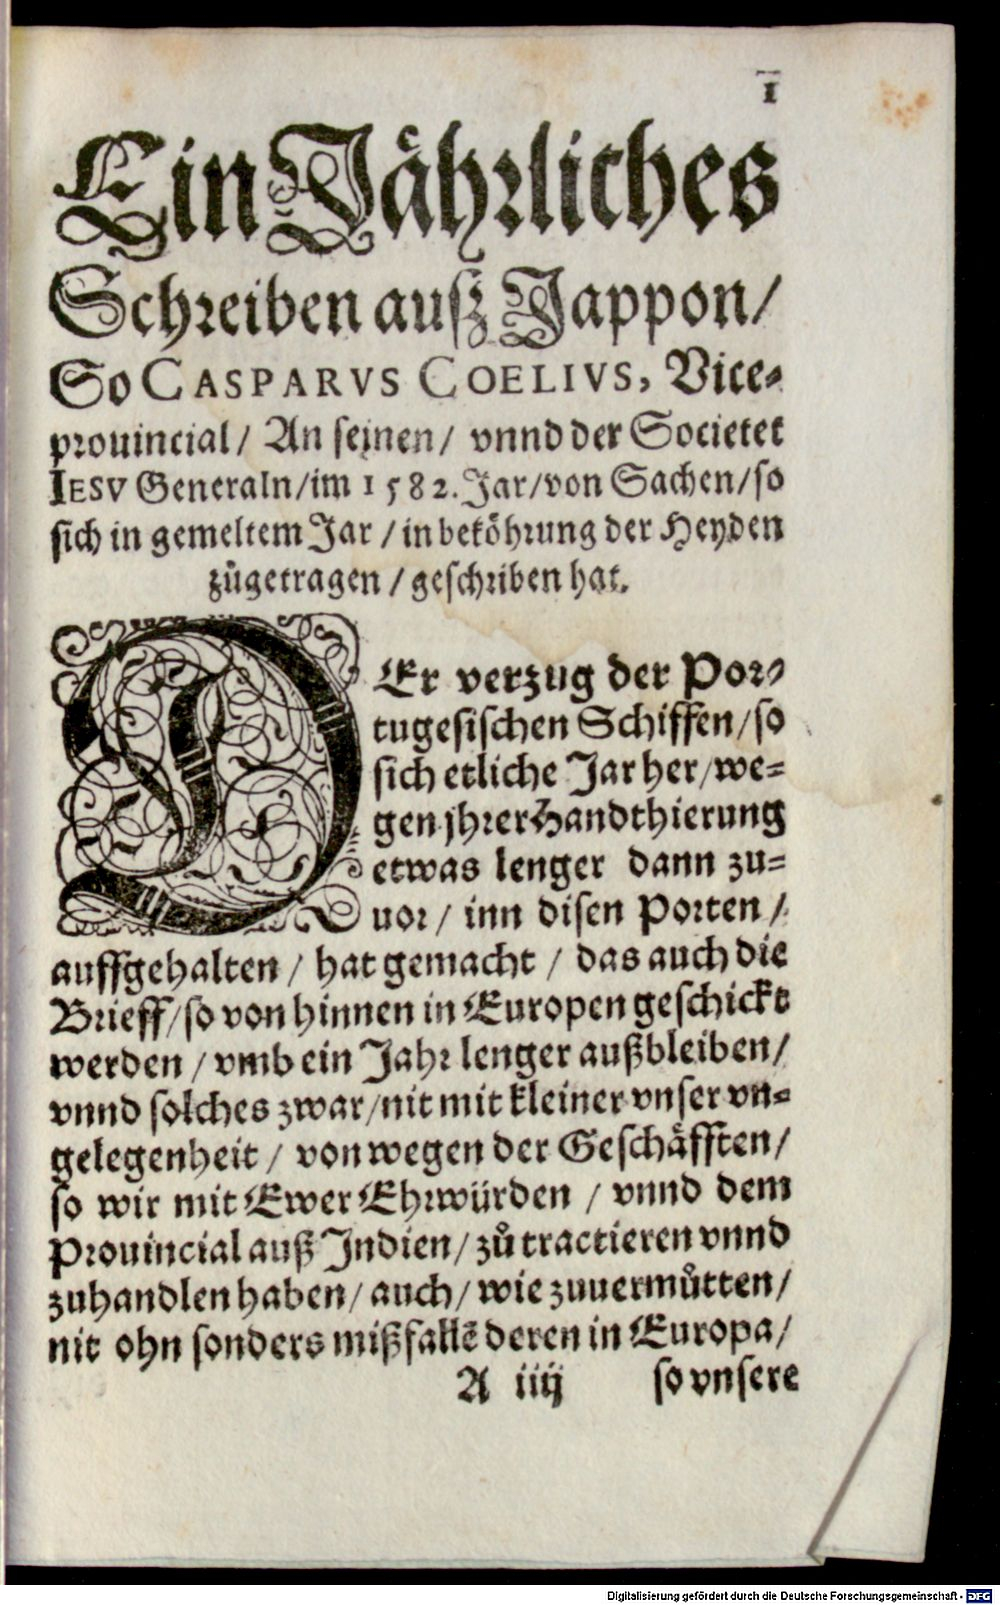 1
Ein Jährliches
Schreiben auß Jappon/
So CASPARVS COELIVS, Vice-
prouincial/ An seinen/ vnnd der Societet
IESV Generaln/im 1582. Jar/von Sachen/so
sich in gemeltem Jar / in beköhrung der Heyden
zůgetragen / geschriben hat.
DEr verzug der Por-
tugesischen Schiffen/so
sich etliche Jar her/we-
gen jhrer Handthierung
etwas lenger dann zu-
uor / inn disen Porten /
auffgehalten / hat gemacht / das auch die
Brieff/so von hinnen in Europen geschickt
werden / vmb ein Jahr lenger außbleiben/
vnnd solches zwar/nit mit kleiner vnser vn-
gelegenheit / von wegen der Geschäfften/
so wir mit Ewer Ehrwürden / vnnd dem
Prouincial auß Indien/ zů tractieren vnnd
zuhandlen haben/ auch/ wie zuuermůtten/
nit ohn sonders mißfallē deren in Europa/
A iiij so vnsere
Digitalisierung gefördert durch die Deutsche Forschungsgemeinschaft - DFG